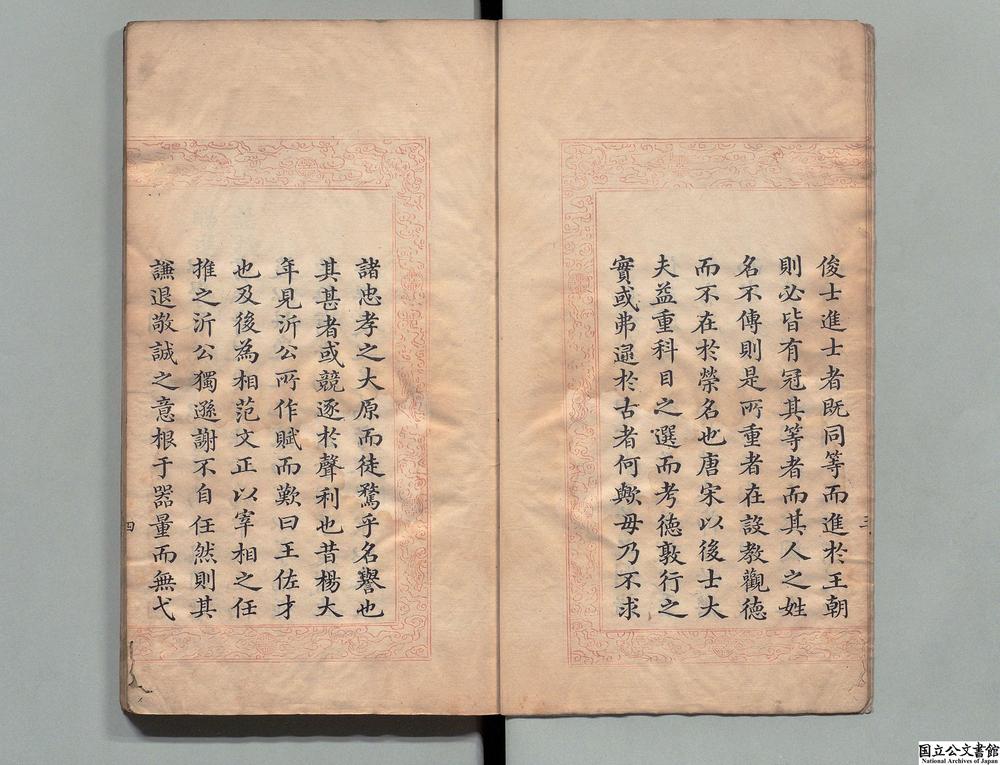 俊士進士者既同等而進於王朝
則必皆有冠其等者而其人之姓
名不傳則是所重者在設教觀德
而不在於榮名也唐宋以後士大
夫益重科目之選而考德敦行之
實或弗逮於古者何歟毋乃不求
三
諸忠孝之大原而徒騖乎名譽也
其甚者或競逐於聲利也昔楊大
年見沂公所作賦而歎曰王佐才
也及後為相范文正以宰相之任
推之沂公獨遜謝不自任然則其
謙退敬誠之意根于器量而無弋
四
国立公文書館
National Archives of Japan